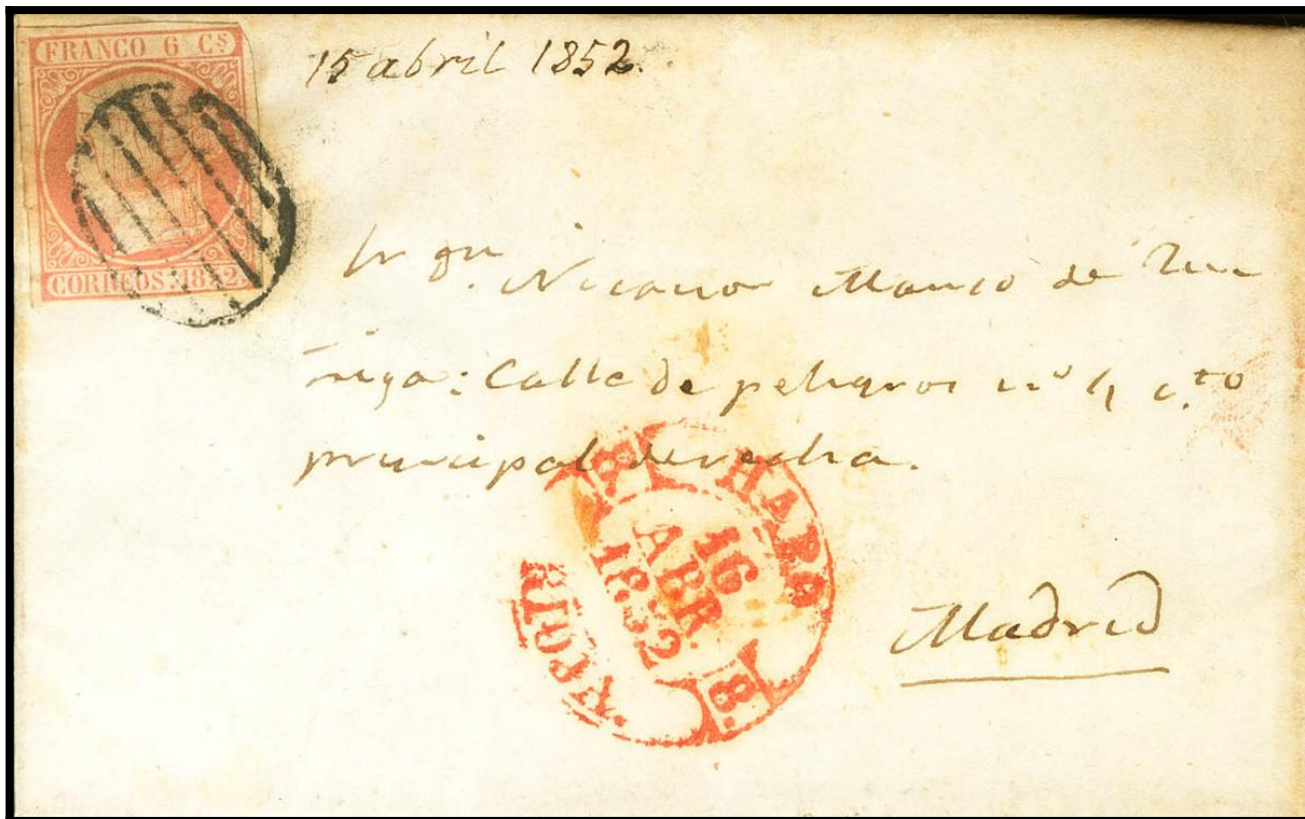 FRANCO 6 Cs
CORREOS. 1852.
15 abril 1852.
Sr Dn.
Nicanor Manso de Zu
ñiga: Calle de peligros nº 4 cto
principal derecha.
Madrid
HARO
8.
16
ABR.
1852
8.
RIOJA.